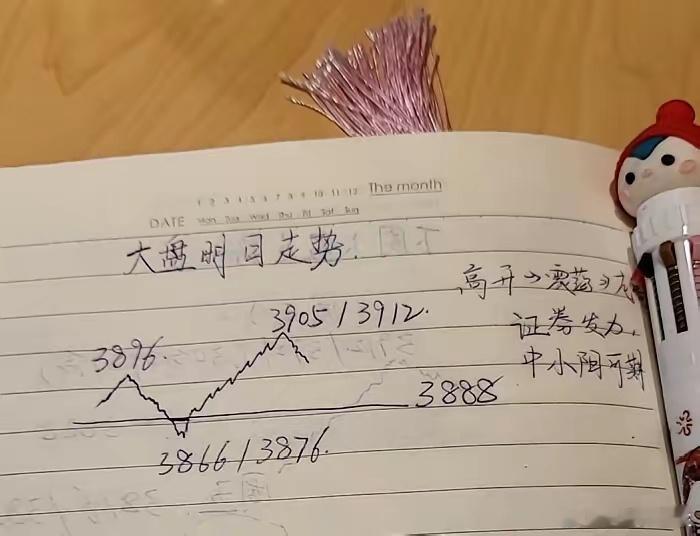 1 2 3 4 5 6 7 8 9 10 11 12 The month
DATE Mon Tue Wed Thu Fri Sat Sun
大盘明日走势.
高开→震荡→
证券发力,
中小阳可期
3905/3912.
3896.
3888
3866/3876.